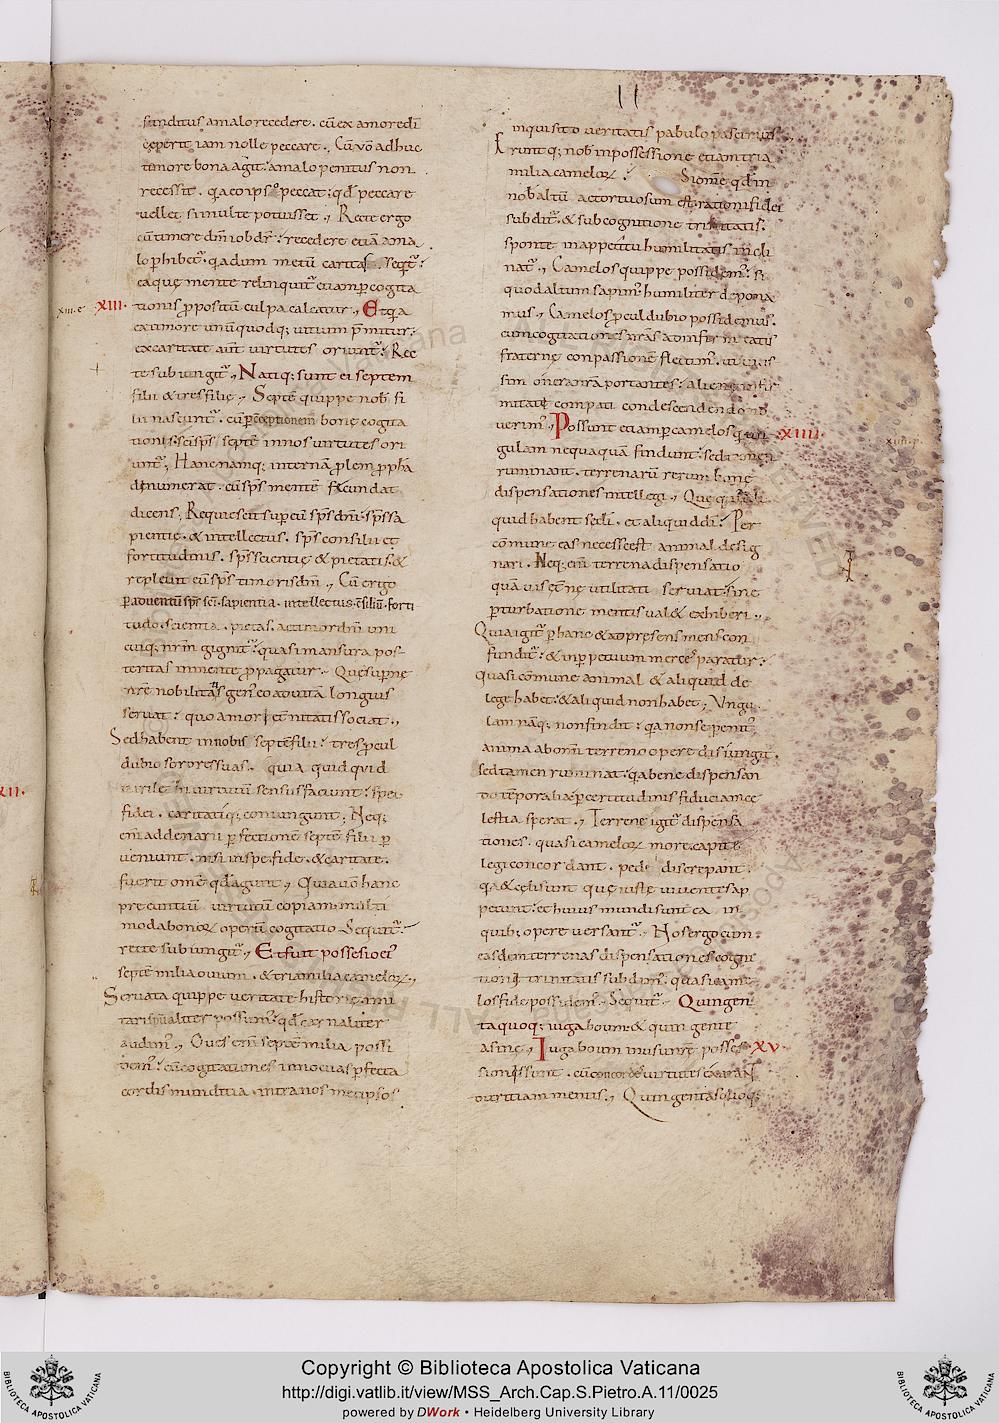 11
funditus a malo recedere. cū ex amore dī
ceperit iam nolle peccare., Cū v̄o adhuc
timore bona agit: a malo penitus non
recessit. q̄a eo ipso peccat: qd̄ peccare
vellet si inulte potuisset., Recte ergo
cū timere dm̄ iob dr̄: recedere etiā a ma
lo phibet᷑. q̄a dum metū caritas seqt᷑:
ea que mente relinquit᷑ etiam p̄ cogita
XIII.
tionis ppositū culpa calcatur., Et q̄a
ex timore unū quodq; vitium p̄mitur:
ex caritate aūt virtutes oriunt᷑: Rec
te subiungit᷑., Natiq; sunt ei septem
filii & tres filię., Septē quippe nob̄ fi
lii nascunt᷑. cū p conceptionem bonę cogita
tionis: sc̄i sp̄s septē in nos virtutes ori
unt᷑; Hanc namq; internā prolem ppha
dinumerat. cū sp̄s mentē fecundat
dicens; Requiescit sup eū sp̄s dn̄i. sp̄s sa
pientię. & intellectus. sp̄s consilii et
fortitudinis. sp̄s scientię & pietatis. &
repleuit eū sp̄s timoris dn̄i., Cū ergo
p aduentū sp̄s sc̄i. sapientia. intellectus. c̄siliū. forti
tudo. scientia. pietas. ac timor dn̄i uni
cuiq; nr̄m gignit᷑: quasi mansura pos
teritas in mente propagatur., Quę supnę
nr̄e nobilitatis gen᷑ eo ad uitā longius
seruat: quo amori et᷑nitatis sociat.,
Sed habent in nobis septē filii: tres pcul
dubio sorores suas. quia quid quid
virile hi virtutū sensus faciunt: spei
fidei. caritatiq; coniungunt; Neq;
eni᷑ ad denarii pfectionē septē filii p
veniunt. nisi in spe. fide. & caritate.
fuerit omē qd̄ agunt., Quia uō hanc
precuntiū virtutū copiam. multi
moda bonoꝝ operū cogitatio Sequit᷑:
recte subiungit᷑., Et fuit possesio ei᷑
septē milia ovium. & tria milia cameloꝝ.,
Seruata quippe veritate historię. imi
tari spualiter possum᷑: qd̄ carnaliter
audim᷑., Oues eni᷑ septē milia possi
dem᷑: cū cogitationes innocuas pfecta
cordis munditia. intra nos metipsos
inquisito veritatis pabulo pascimus.,
Eruntq; nob̄ in possessione etiam tria
milia cameloꝝ: Si om̄e qd̄ in
nob̄ altū. ac tortuosum est. rationi fidei
subdit᷑. & sub cognitione trinitatis.
sponte in appetitu humilitatis incli
nat᷑., Camelos quippe possidem᷑: si
quod altum sapim᷑. humiliter depona
mus., Camelos pcul dubio possidemus.
cum cogitationes nr̄as ad infirmitatis
fraternę conpassionē flectim᷑. ut uicis
sim onera nr̄a portantes: alienę infir
mitati conpati condescendendo no
verim᷑., Possunt etiam p camelos qui un
XIIII.
gulam nequaquā findunt: sed tantum
ruminant. terrenarū rerum bonę
dispensationes intellegi., Quę quia ali
quid habent seculi. et aliquid dī: Per
cōmune eas necesse est animal desig
nari. Neq; eni᷑ terrena dispensatio
quā uis et᷑nę utilitati seruiat: sine
pturbatione mentis ualet exhiberi.,
Quia igit᷑ p hanc & ad presens mens con
fundit᷑: & in ppetuum merces paratur:
quasi cōmune animal & aliquid de
lege habet: & aliquid non habet; Ungu
lam nāq; non findit: q̄a non se penit᷑
anima ab om̄i terreno opere disiungit.
sed tamen ruminat: q̄a bene dispensan
do tēporalia p certitudinis fiduciam cę
lestia sperat., Terrene igit᷑ dispensa
tiones. quasi cameloꝝ more. capite
legi concordant. pede discrepant:
q̄a & cęli sunt quę iuste viventes ap
petunt: et huius mundi sunt ea in
quib; opere versant᷑., Nos ergo cum
easdem terrenas dispensationes cogni
tioni trinitatis subdim᷑. quasi came
los fide possidem᷑. Sequit᷑. Quingen
ta quoq; iuga boum. & quingente
asinę., Iuga boum in usum nr̄ę posses
XV
sionis sunt. cū concordes virtutes exarant
duritiam mentis., Quingentas quoq;
Copyright © Biblioteca Apostolica Vaticana
http://digi.vatlib.it/view/MSS_Arch.Cap.S.Pietro.A.11/0025
powered by DWork • Heidelberg University Library
BIBLIOTECA APOSTOLICA VATICANA
BIBLIOTECA APOSTOLICA VATICANA